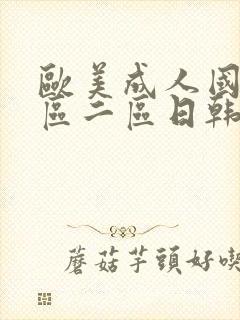 歐美成人國
區二區日韩
蘑菇芋頭好喫